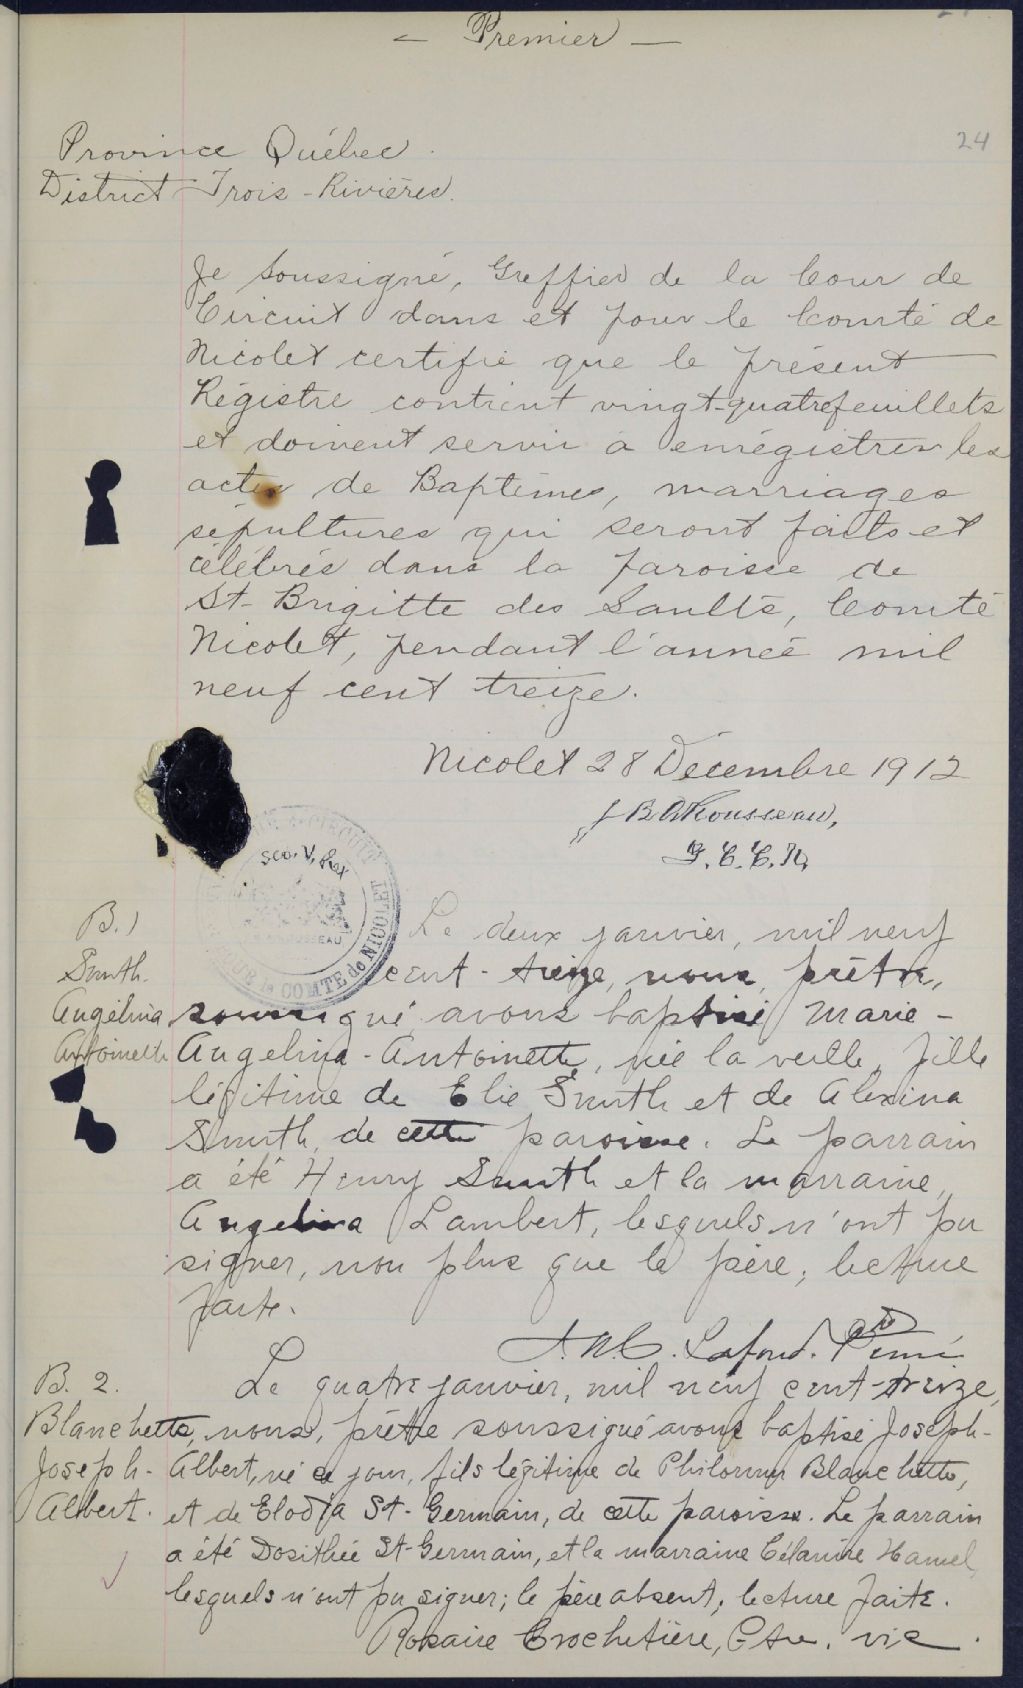 – Premier –
24
Province Québec.
District Trois-Rivières.
Je soussigné, Greffier de la Cour de
Circuit dans et pour le Comté de
Nicolet certifie que le présent
Régistre contient vingt-quatre feuillets
et doivent servir à enrégistrer les
actes de Baptêmes, marriages
sépultures qui seront faits et
célébrés dans la paroisse de
St-Brigitte des Saults, Comté
Nicolet, pendant l'année mil
neuf cent treize.
Nicolet 28 Décembre 1912
Rousseau,
G.C.C.N.
COMTÉ de NICOLET
B.1
Smith.
Angélina
Antoinette
Le deux janvier, mil neuf
cent-treize, nous, prêtre,
soussigné avons baptisé Marie-
Angelina-Antoinette, née la veille, fille
légitime de Elie Smith et de Alexina
Smith, de cette paroisse. Le parrain
a été Henry Smith et la marraine,
Angelina Lambert, lesquels n'ont pu
signer, non plus que le père; lecture
faite.
Lafond.
B. 2.
Blanchette,
Joseph-
Albert.
Le quatre janvier, mil neuf cent-treize,
nous, prêtre soussigné avons baptisé Joseph-
Albert, né ce jour, fils légitime de Blanchette,
et de Elodia St-Germain, de cette paroisse. Le parrain
a été Dosithée St-Germain, et la marraine Célanire Hamel,
lesquels n'ont pu signer; le père absent; lecture faite.
Rosaire Crochetière, Ptre. vic.